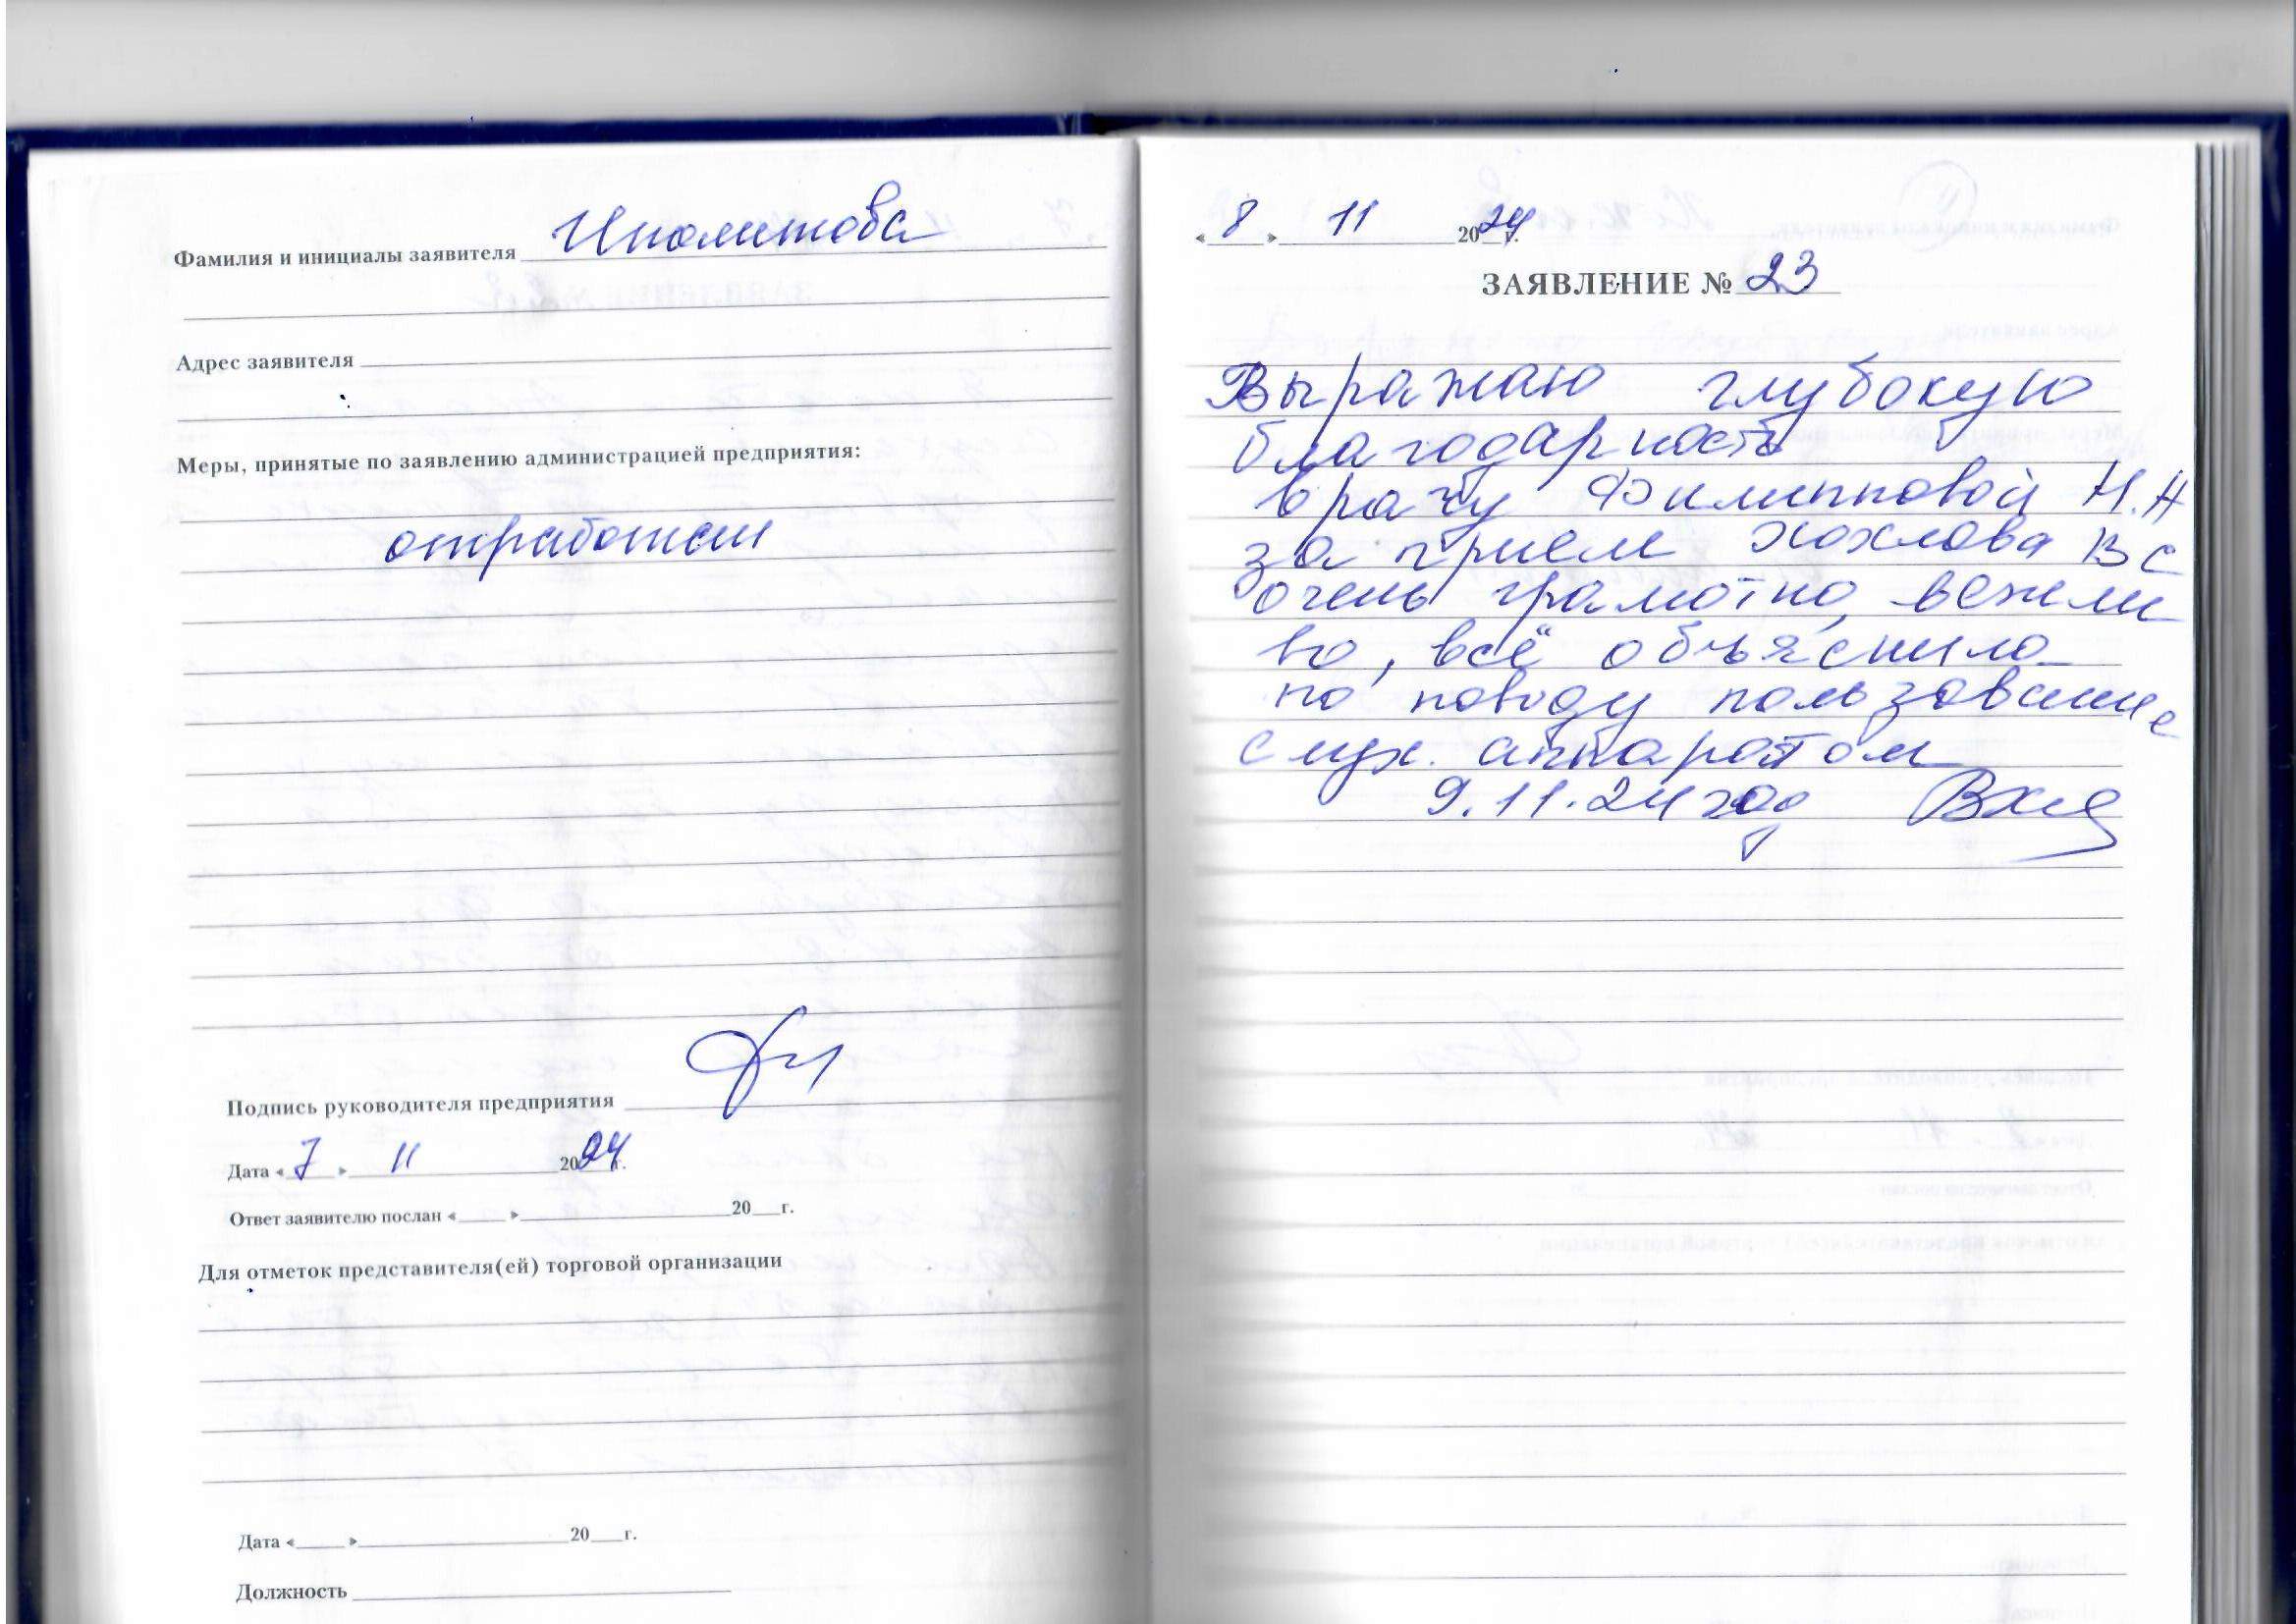 Фамилия и инициалы заявителя Иполитова
Адрес заявителя
Меры, принятые по заявлению администрацией предприятия:
отработан
Подпись руководителя предприятия
Дата « 7 » 11 2024г.
Ответ заявителю послан « » 20 г.
Для отметок представителя(ей) торговой организации
Дата « » 20 г.
Должность
« 8 » 11 2024г.
ЗАЯВЛЕНИЕ № 23
Выражаю глубокую
благодарность
врачу Филипповой Н.Н
за прием Хохлова В С
очень грамотно, вежли
во, всё объяснила
по поводу пользование
слух. аппаратом
9.11.24 год